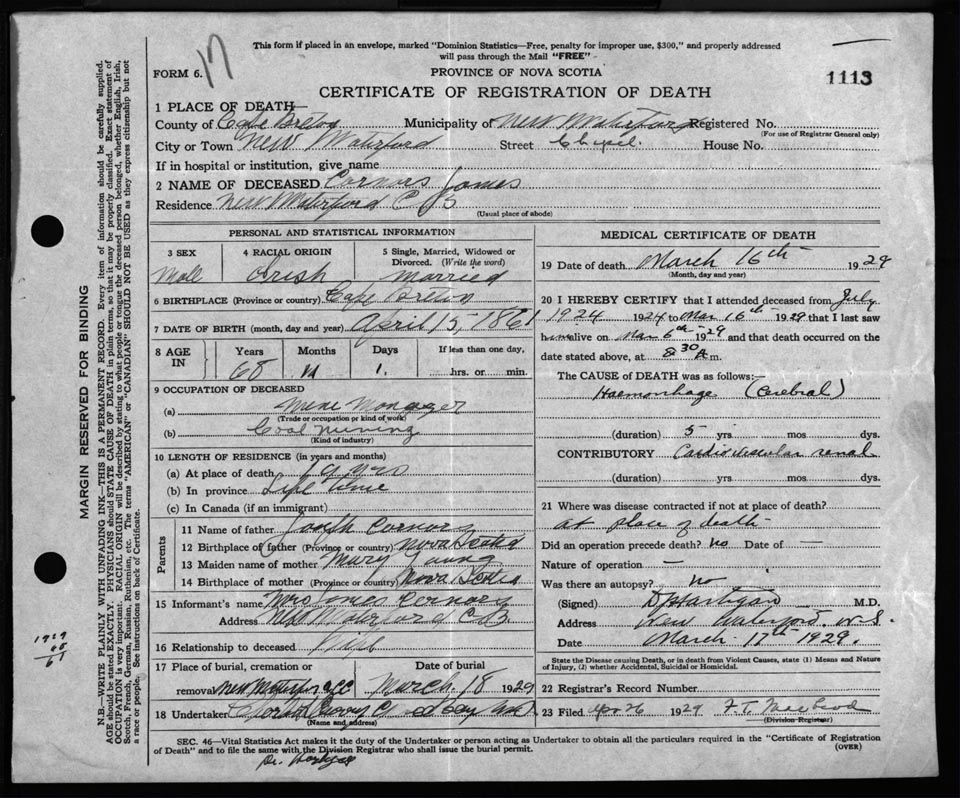 17
This form if placed in an envelope, marked "Dominion Statistics—Free, penalty for improper use, $300," and properly addressed
will pass through the Mail "FREE"
FORM 6.
PROVINCE OF NOVA SCOTIA
1113
CERTIFICATE OF REGISTRATION OF DEATH
1 PLACE OF DEATH—
County of Cape Breton Municipality of New Waterford Registered No.
(For use of Registrar General only)
City or Town New Waterford Street Chapel. House No.
If in hospital or institution, give name
2 NAME OF DECEASED Connors James
Residence New Waterford C B
(Usual place of abode)
PERSONAL AND STATISTICAL INFORMATION
3 SEX 4 RACIAL ORIGIN 5 Single, Married, Widowed or
Divorced. (Write the word)
Male Irish married
6 BIRTHPLACE (Province or country) Cape Breton
7 DATE OF BIRTH (month, day and year) April 15, 1861
8 AGE IN Years Months Days If less than one day,
68 1. hrs. or min.
9 OCCUPATION OF DECEASED
(a) Mine Manager
(Trade or occupation or kind of work)
(b) Coal mining
(Kind of industry)
10 LENGTH OF RESIDENCE (in years and months)
(a) At place of death yrs
(b) In province Life time
(c) In Canada (if an immigrant)
Parents
11 Name of father Joseph Connors
12 Birthplace of father (Province or country) Nova Scotia
13 Maiden name of mother Mary Young
14 Birthplace of mother (Province or country) Nova Scotia
15 Informant's name Mrs James Connors
Address New Waterford C.B.
16 Relationship to deceased Wife
17 Place of burial, cremation or Date of burial
removal New Waterford March. 18 1929
18 Undertaker
(Name and address)
MEDICAL CERTIFICATE OF DEATH
19 Date of death March 16th 1929
(Month, day and year)
20 I HEREBY CERTIFY that I attended deceased from July
1924 1924 to Mar 16th 1929 that I last saw
him alive on Mar 6th 1929 and that death occurred on the
date stated above, at 8 30 A m.
The CAUSE of DEATH was as follows:—
Haemorrhage (Cerebral)
(duration) 5 yrs mos dys.
CONTRIBUTORY Cardio vascular renal
(duration) yrs. mos. dys.
21 Where was disease contracted if not at place of death?
at place of death
Did an operation precede death? no Date of —
Nature of operation —
Was there an autopsy? no
(Signed) D Hartigan M.D.
Address New Waterford, N.S.
Date March 17th 1929.
State the Disease causing Death, or in death from Violent Causes, state (1) Means and Nature
of Injury, (2) whether Accidental, Suicidal or Homicidal.
22 Registrar's Record Number
23 Filed Apr 26 1929 F. T. MacLeod
(Division Registrar)
SEC. 46—Vital Statistics Act makes it the duty of the Undertaker or person acting as Undertaker to obtain all the particulars required in the "Certificate of Registration
of Death" and to file the same with the Division Registrar who shall issue the burial permit.
(OVER)
Dr. Hartigan
MARGIN RESERVED FOR BINDING
N.B.—WRITE PLAINLY WITH UNFADING INK—THIS IS A PERMANENT RECORD. Every item of information should be carefully supplied.
AGE should be stated EXACTLY. PHYSICIANS should STATE CAUSE OF DEATH in plain terms, so that it may be properly classified. Exact statement of
OCCUPATION is very important. RACIAL ORIGIN will be described by stating to what people or tongue the deceased person belonged, whether English, Irish,
Scotch, French, German, Russian, Ruthenian, etc. The terms "AMERICAN" or "CANADIAN" SHOULD NOT BE USED as they express citizenship but not
a race or people. See instructions on back of Certificate.
1929
68
61